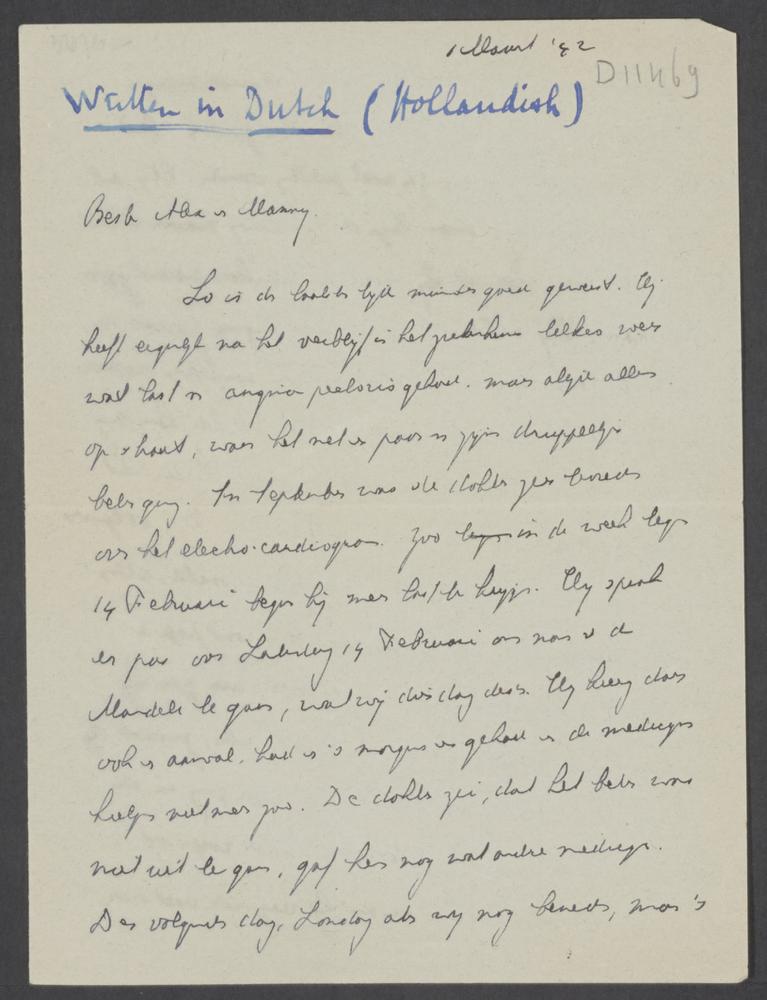 1 Maart '42
D11469
Written in Dutch (Hollandish)
Beste Alex en Manny.
Lo is de laatste tijd minder goed geweest. Hij
heeft eigenlijk na het verblijf in het ziekenhuis telkens weer
wat last van angina pectoris gehad. maar altijd alles
op straat, waar het met een paar van zijn druppeltjes
beter ging. In September was de dokter zeer tevreden
over het electro-cardiogram. Zoo in de week tegen
14 Februari begon hij meer last te krijgen. Hij sprak
er pas over Zaterdag 14 Februari om naar de
Mandele te gaan, wat wij dien dag deden. Hij kreeg daar
ook een aanval, had er 's morgens een gehad en de medicijn
hielp niet meer zoo. De dokter zei, dat het beter was
niet uit te gaan, gaf hem nog wat andere medicijn.
Den volgenden dag, Zondag aten wij nog beneden, maar 's